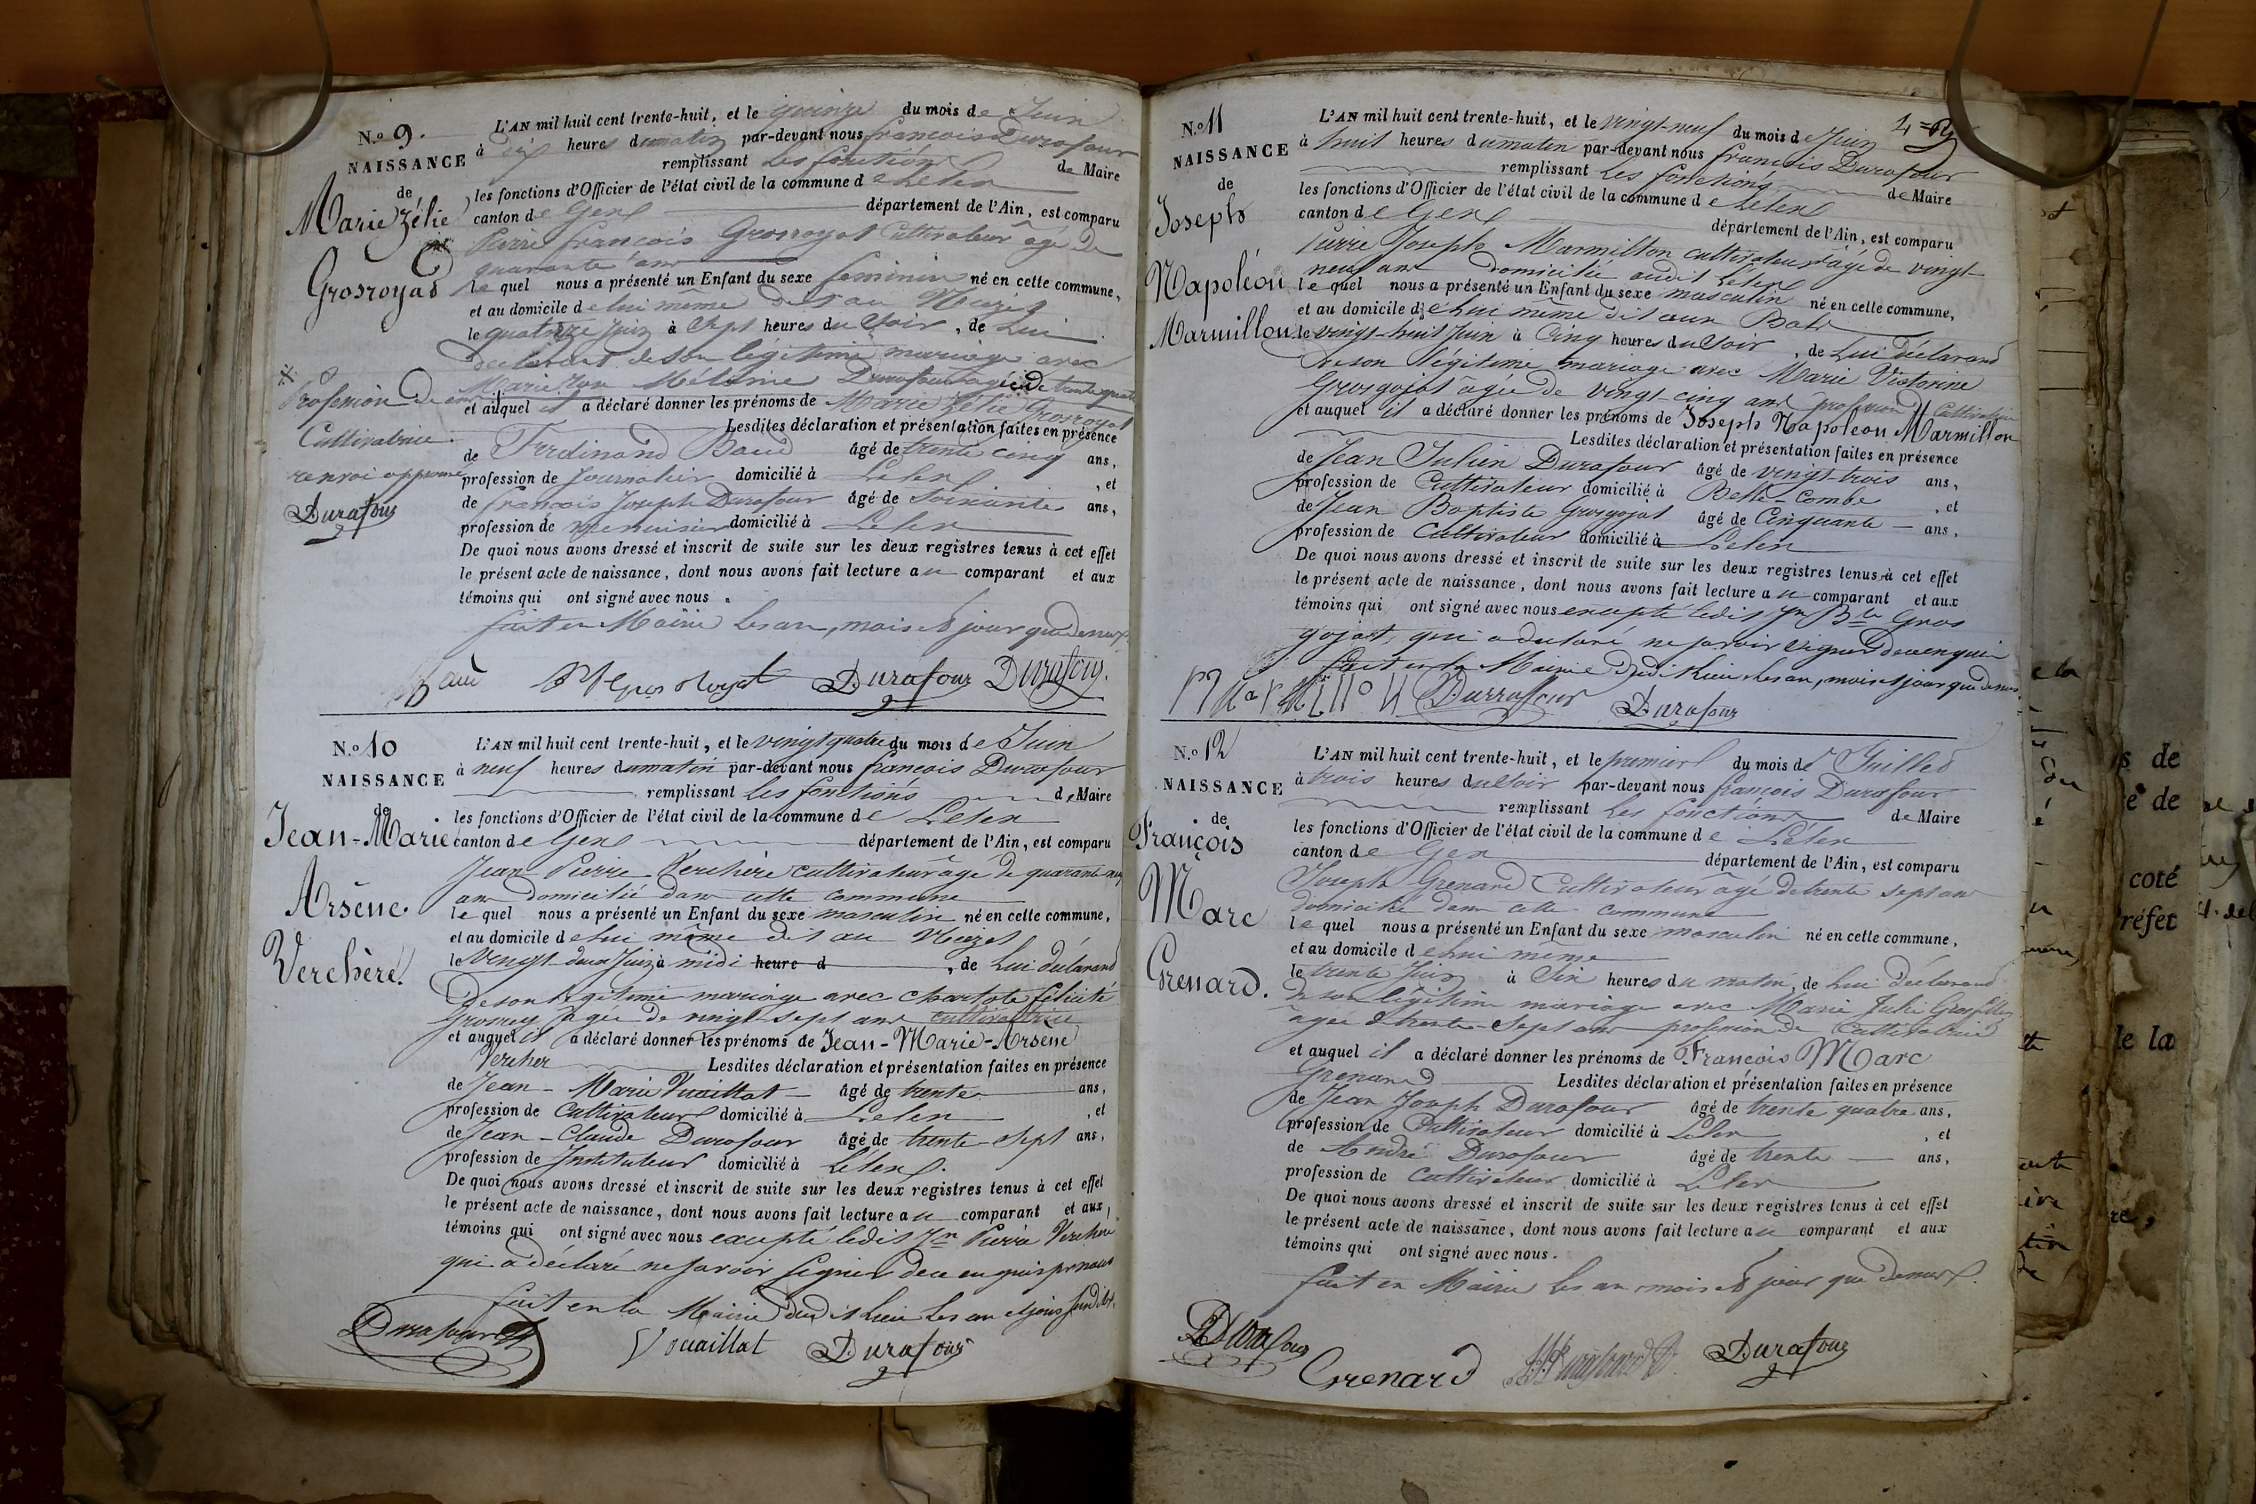 N.º 9.
NAISSANCE
de
Marie Zélie
Grosroyat
L'AN mil huit cent trente-huit, et le quinze du mois de Juin
à six heures du matin par-devant nous francois Durafour
remplissant les fonctions de Maire
les fonctions d'Officier de l'état civil de la commune de Lelex
canton de Gex département de l'Ain, est comparu
Pierre francois Grosroyat Cultivateur âgé de
quarante ans
le quel nous a présenté un Enfant du sexe feminin né en cette commune,
et au domicile de lui meme dit au Niaizet
le quatorze Juin à Sept heures du Soir, de Lui
declarant de son légitime mariage avec
Marie Mélanie Durafour agée de trente quatre
et auquel il a déclaré donner les prénoms de Marie Zélie Grosroyat
Lesdites déclaration et présentation faites en présence
de Ferdinand Baud âgé de trente cinq ans,
profession de Journalier domicilié à Lelex, et
de francois Joseph Durafour âgé de Soixante ans,
profession de menuisier domicilié à Lelex
De quoi nous avons dressé et inscrit de suite sur les deux registres tenus à cet effet
le présent acte de naissance, dont nous avons fait lecture au comparant et aux
témoins qui ont signé avec nous.
fait en Mairie les an, mois et jour que dessus
Profession de
Cultivatrice
renvoi approuvé
Durafour
Baud Grosroyat Durafour Durafour
N.º 10
NAISSANCE
de
Jean-Marie
Arsène
Verchère
L'AN mil huit cent trente-huit, et le vingt quatre du mois de Juin
à neuf heures du matin par-devant nous francois Durafour
remplissant les fonctions de Maire
les fonctions d'Officier de l'état civil de la commune de Lelex
canton de Gex département de l'Ain, est comparu
Jean Pierre Verchère cultivateur âgé de quarante
ans domicilié dans cette commune
le quel nous a présenté un Enfant du sexe masculin né en cette commune,
et au domicile de lui même dit au Niaizet
le Vingt-deux Juin à midi heure d, de Lui déclarant
de son légitime mariage avec charlote félicité
Grosrey agée de vingt-sept ans cultivatrice
et auquel il a déclaré donner les prénoms de Jean-Marie-Arsène
Vercher Lesdites déclaration et présentation faites en présence
de Jean-Marie Vuaillat âgé de trente ans,
profession de Cultivateur domicilié à Lelex, et
de Jean-Claude Durafour âgé de trente sept ans,
profession de Instituteur domicilié à Lelex.
De quoi nous avons dressé et inscrit de suite sur les deux registres tenus à cet effet
le présent acte de naissance, dont nous avons fait lecture au comparant et aux
témoins qui ont signé avec nous excepté ledit Jn Pierre Verchere
qui a déclaré ne savoir signer de ce enquis par nous
fait en la Mairie dudit Lieu les an et jour
Durafour Vouaillat Durafour
4
N.º 11
NAISSANCE
de
Joseph
Napoléon
Marmillon
L'AN mil huit cent trente-huit, et le vingt-neuf du mois de Juin
à huit heures du matin par-devant nous francois Durafour
remplissant les fonctions de Maire
les fonctions d'Officier de l'état civil de la commune de Lelex
canton de Gex département de l'Ain, est comparu
Pierre Joseph Marmillon cultivateur âgé de vingt
neuf ans domicilié audit Lelex
le quel nous a présenté un Enfant du sexe masculin né en cette commune,
et au domicile de Lui même dit aux Bats
le vingt-huit Juin à Cinq heures du Soir, de Lui déclarant
de son légitime mariage avec Marie Victorine
Grosgojat âgée de vingt-cinq ans profession de Cultivatrice
et auquel il a déclaré donner les prénoms de Joseph Napoléon Marmillon
Lesdites déclaration et présentation faites en présence
de Jean Julien Durafour âgé de vingt-trois ans,
profession de Cultivateur domicilié à Belle-Combe, et
de Jean Baptiste Grosgojat âgé de Cinquante ans,
profession de Cultivateur domicilié à Lelex
De quoi nous avons dressé et inscrit de suite sur les deux registres tenus à cet effet
le présent acte de naissance, dont nous avons fait lecture au comparant et aux
témoins qui ont signé avec nous excepté ledit Jn Bte Gros
gojat, qui a declaré ne savoir signer de ce enquis
fait en la Mairie dudit Lieu les an, mois et jour que dessus
Marmillon Durraffour Durafour
N.º 12
NAISSANCE
de
François
Marc
Grenard.
L'AN mil huit cent trente-huit, et le premier du mois de Juillet
à trois heures du Soir par-devant nous francois Durafour
remplissant les fonctions de Maire
les fonctions d'Officier de l'état civil de la commune de Lélex
canton de Gex département de l'Ain, est comparu
Joseph Grenard Cultivateur âgé de trente sept ans
domicilié dans cette commune
le quel nous a présenté un Enfant du sexe masculin né en cette commune,
et au domicile de Lui même
le trente Juin à Six heures du matin, de Lui déclarant
de son légitime mariage avec Marie Julie
agée de trente-Sept ans profession de Cultivatrice
et auquel il a déclaré donner les prénoms de François Marc
Grenard Lesdites déclaration et présentation faites en présence
de Jean Joseph Durafour âgé de trente quatre ans,
profession de Cultivateur domicilié à Lelex, et
de André Durafour âgé de trente ans,
profession de Cultivateur domicilié à Lelex
De quoi nous avons dressé et inscrit de suite sur les deux registres tenus à cet effet
le présent acte de naissance, dont nous avons fait lecture au comparant et aux
témoins qui ont signé avec nous.
fait en Mairie les an, mois et jour que dessus.
Durafour Grenard Durafour
s de
e de
coté
réfet
le la